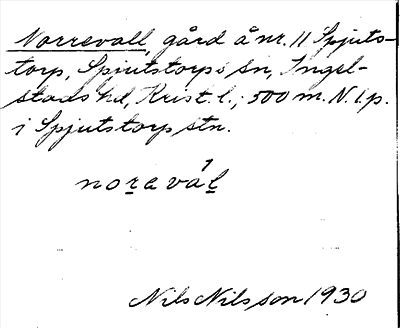 Norrevall, gård å nr. 11 Spjuts-
torp, Spjutstorps sn, Ingel-
stads hd, Krist. l.; 500 m. N. l. p.
i Spjutstorp stn.
noravál
Nils Nilsson 1930